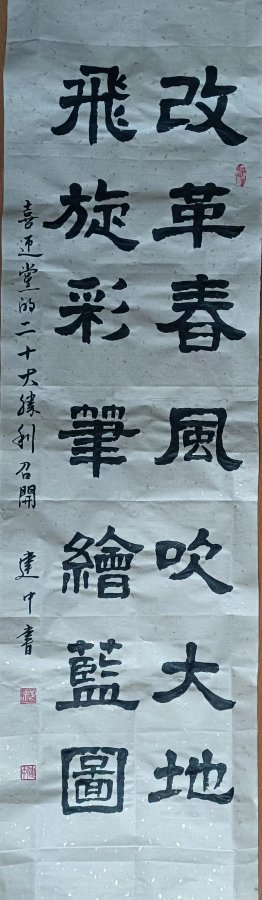 改革春風吹大地
飛旋彩筆繪藍圖
喜迎黨的二十大勝利召開 建中書